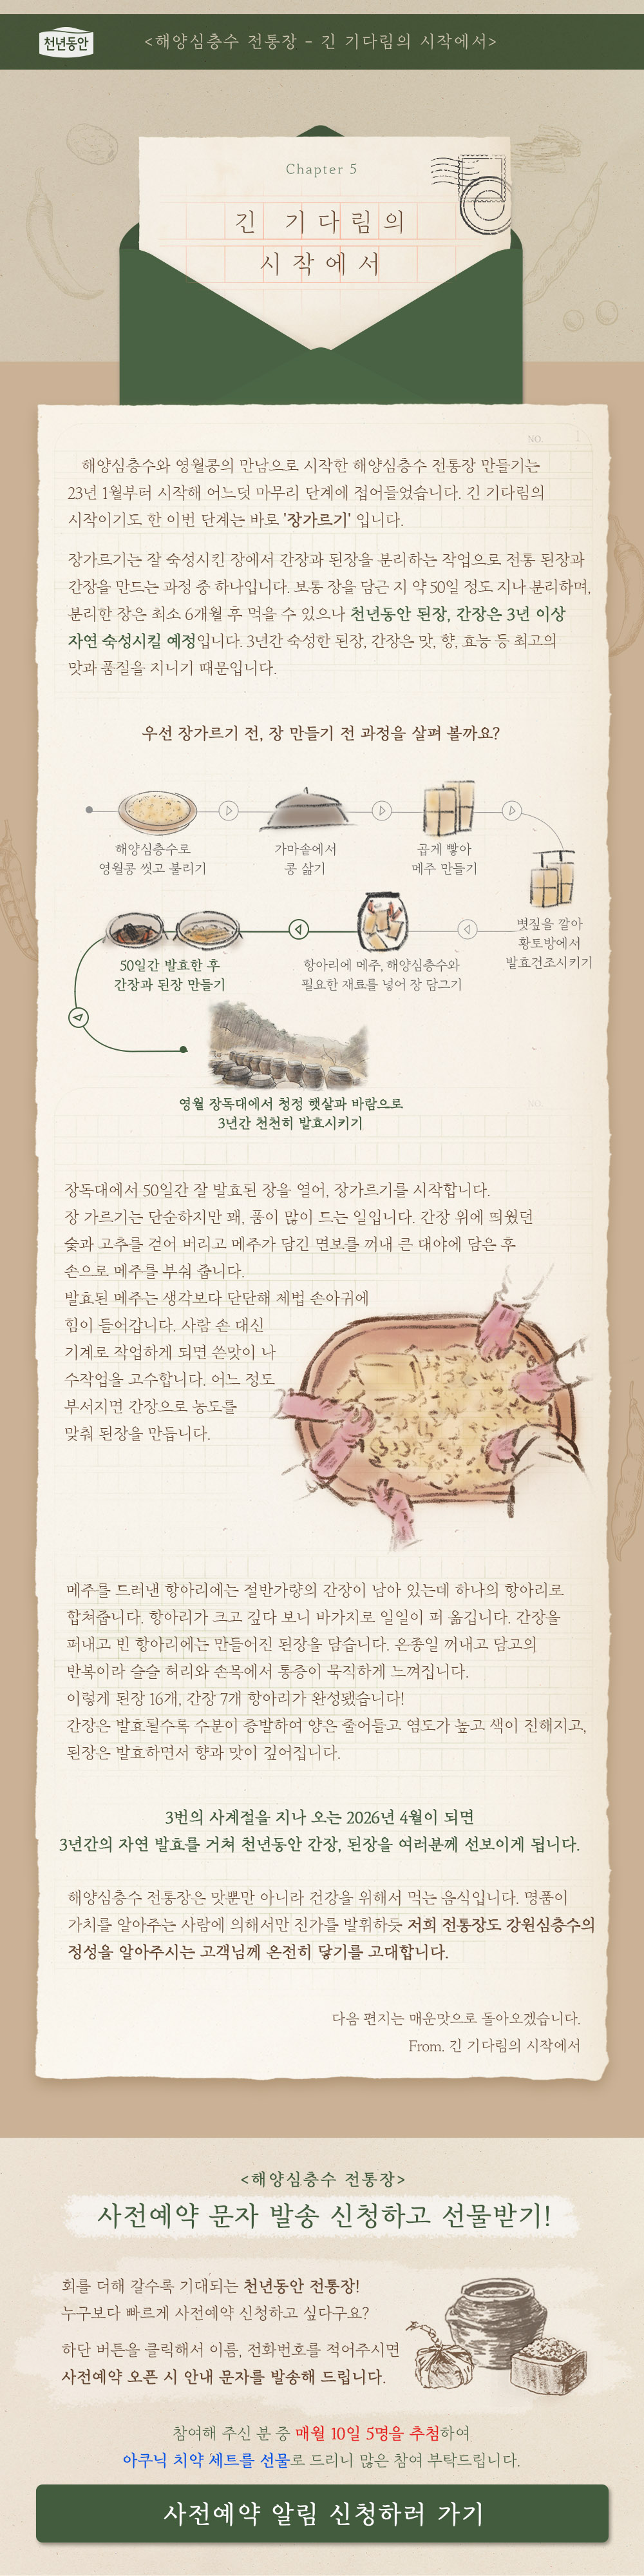 천년동안
<해양심층수 전통장 - 긴 기다림의 시작에서>
Chapter 5
긴 기다림의
시작에서
NO. 1
해양심층수와 영월콩의 만남으로 시작한 해양심층수 전통장 만들기는
23년 1월부터 시작해 어느덧 마무리 단계에 접어들었습니다. 긴 기다림의
시작이기도 한 이번 단계는 바로 '장가르기' 입니다.
장가르기는 잘 숙성시킨 장에서 간장과 된장을 분리하는 작업으로 전통 된장과
간장을 만드는 과정 중 하나입니다. 보통 장을 담근 지 약 50일 정도 지나 분리하며,
분리한 장은 최소 6개월 후 먹을 수 있으나 천년동안 된장, 간장은 3년 이상
자연 숙성시킬 예정입니다. 3년간 숙성한 된장, 간장은 맛, 향, 효능 등 최고의
맛과 품질을 지니기 때문입니다.
우선 장가르기 전, 장 만들기 전 과정을 살펴 볼까요?
해양심층수로
영월콩 씻고 불리기
가마솥에서
콩 삶기
곱게 빻아
메주 만들기
볏짚을 깔아
황토방에서
발효건조시키기
항아리에 메주, 해양심층수와
필요한 재료를 넣어 장 담그기
50일간 발효한 후
간장과 된장 만들기
영월 장독대에서 청정 햇살과 바람으로
3년간 천천히 발효시키기
NO.
장독대에서 50일간 잘 발효된 장을 열어, 장가르기를 시작합니다.
장 가르기는 단순하지만 꽤, 품이 많이 드는 일입니다. 간장 위에 띄웠던
숯과 고추를 걷어 버리고 메주가 담긴 면보를 꺼내 큰 대야에 담은 후
손으로 메주를 부숴 줍니다.
발효된 메주는 생각보다 단단해 제법 손아귀에
힘이 들어갑니다. 사람 손 대신
기계로 작업하게 되면 쓴맛이 나
수작업을 고수합니다. 어느 정도
부서지면 간장으로 농도를
맞춰 된장을 만듭니다.
메주를 드러낸 항아리에는 절반가량의 간장이 남아 있는데 하나의 항아리로
합쳐줍니다. 항아리가 크고 깊다 보니 바가지로 일일이 퍼 옮깁니다. 간장을
퍼내고 빈 항아리에는 만들어진 된장을 담습니다. 온종일 꺼내고 담고의
반복이라 슬슬 허리와 손목에서 통증이 묵직하게 느껴집니다.
이렇게 된장 16개, 간장 7개 항아리가 완성됐습니다!
간장은 발효될수록 수분이 증발하여 양은 줄어들고 염도가 높고 색이 진해지고,
된장은 발효하면서 향과 맛이 깊어집니다.
3번의 사계절을 지나 오는 2026년 4월이 되면
3년간의 자연 발효를 거쳐 천년동안 간장, 된장을 여러분께 선보이게 됩니다.
해양심층수 전통장은 맛뿐만 아니라 건강을 위해서 먹는 음식입니다. 명품이
가치를 알아주는 사람에 의해서만 진가를 발휘하듯 저희 전통장도 강원심층수의
정성을 알아주시는 고객님께 온전히 닿기를 고대합니다.
다음 편지는 매운맛으로 돌아오겠습니다.
From. 긴 기다림의 시작에서
<해양심층수 전통장>
사전예약 문자 발송 신청하고 선물받기!
회를 더해 갈수록 기대되는 천년동안 전통장!
누구보다 빠르게 사전예약 신청하고 싶다구요?
하단 버튼을 클릭해서 이름, 전화번호를 적어주시면
사전예약 오픈 시 안내 문자를 발송해 드립니다.
참여해 주신 분 중 매월 10일 5명을 추첨하여
아쿠닉 치약 세트를 선물로 드리니 많은 참여 부탁드립니다.
사전예약 알림 신청하러 가기